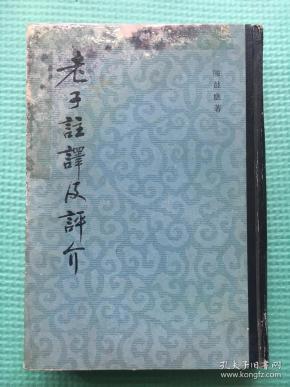 老子註譯及評介
陳鼓應著
孔夫子旧书网